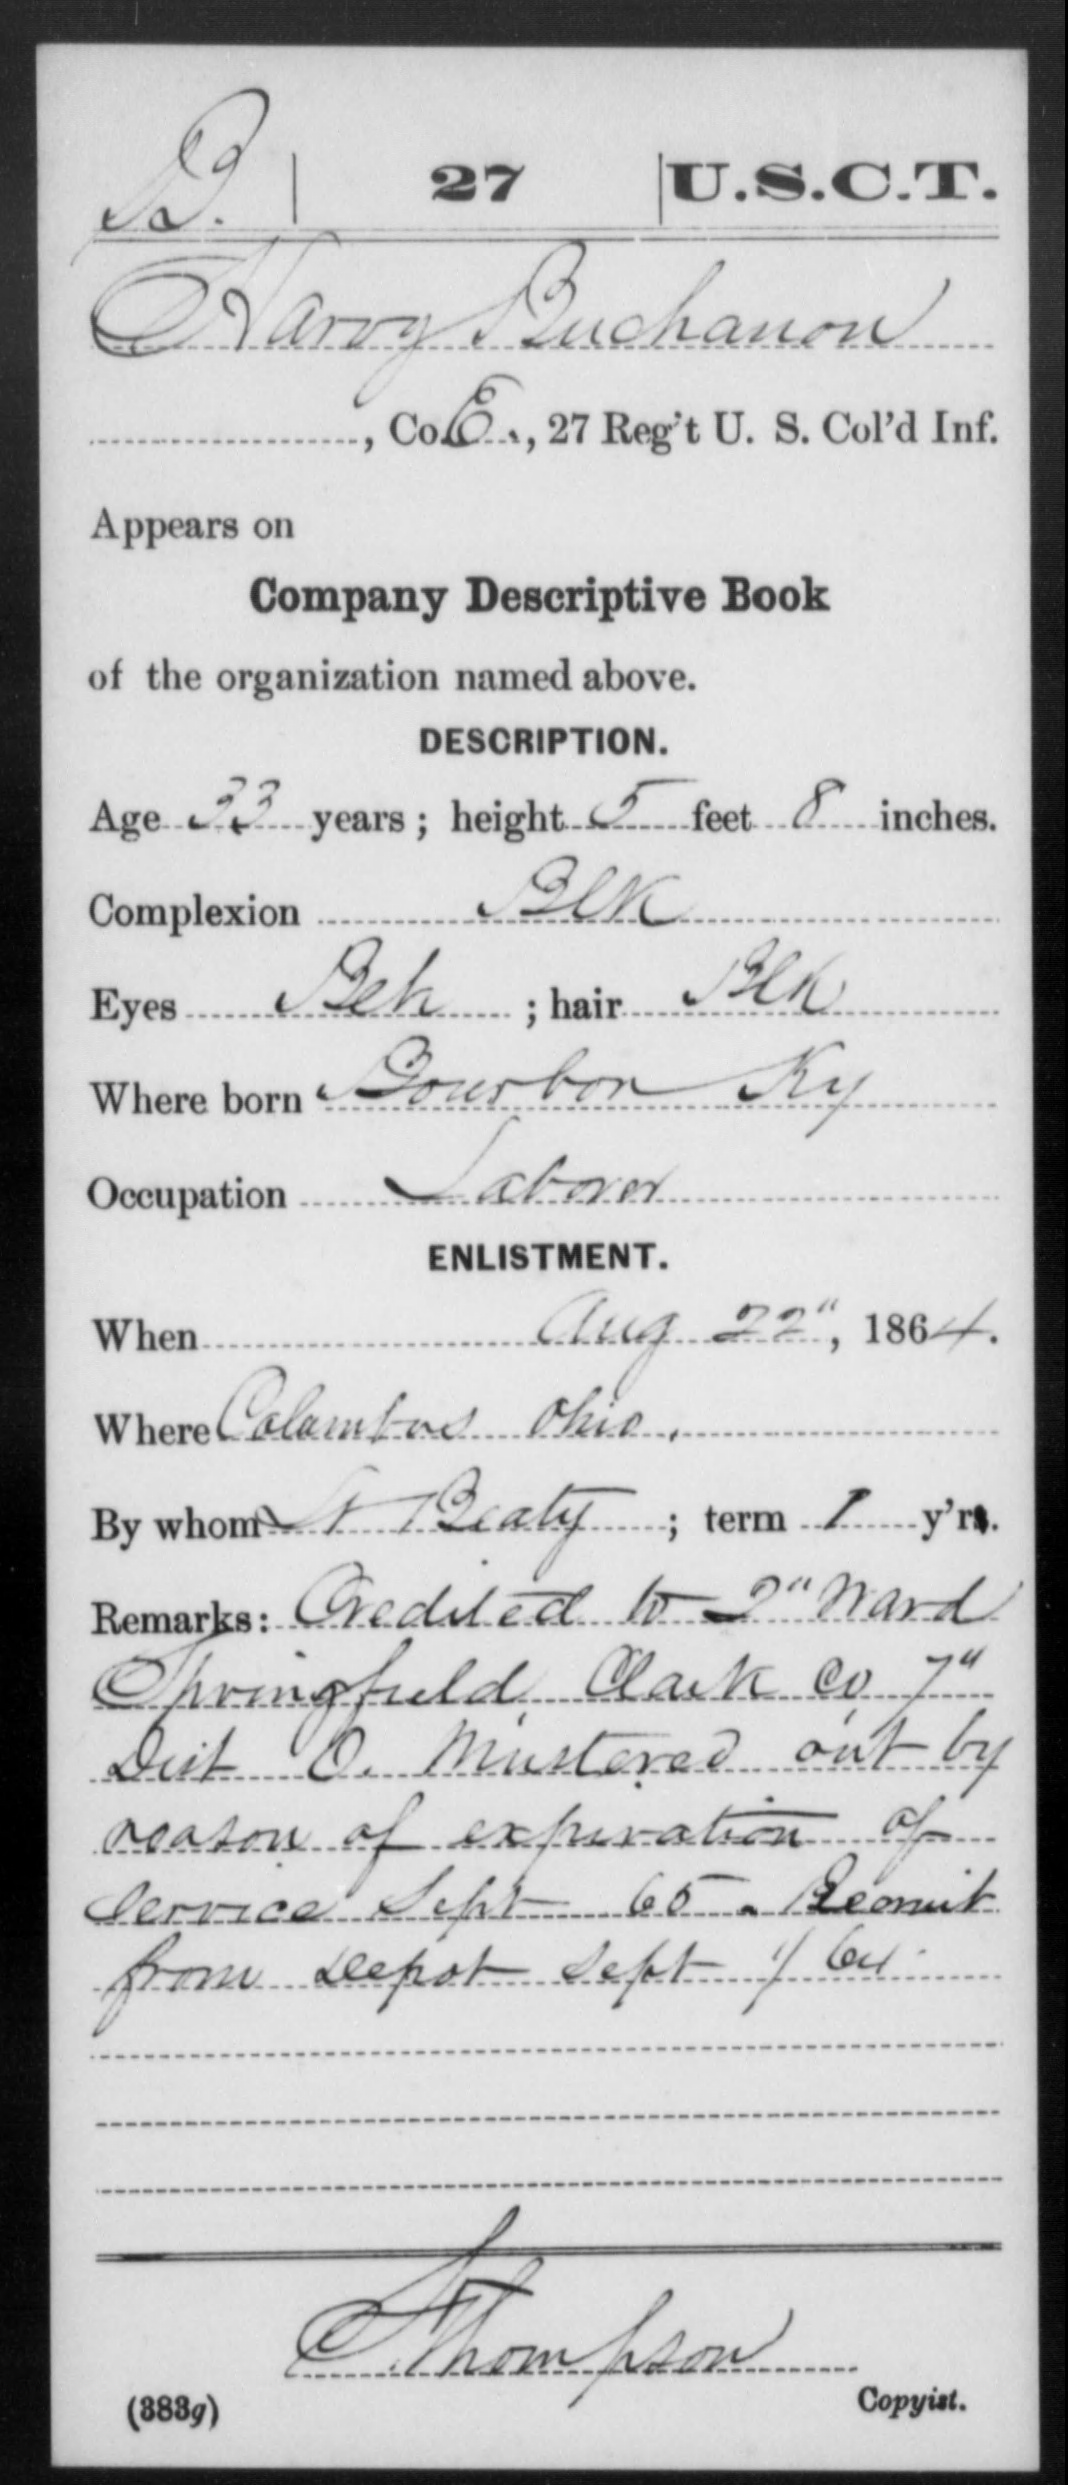 B. | 27 | U.S.C.T.
Harvy Buchanon
, Co. E., 27 Reg't U. S. Col'd Inf.
Appears on
Company Descriptive Book
of the organization named above.
DESCRIPTION.
Age 33 years; height 5 feet 8 inches.
Complexion Blk
Eyes Blk ; hair Blk
Where born Bourbon Ky
Occupation Laborer
ENLISTMENT.
When Aug 22", 1864.
Where Columbus Ohio.
By whom Beaty ; term 1 y'rs.
Remarks: Credited to 2" Ward
Springfield, Clark Co, 7"
Dist O. Mustered out by
reason of expiration of
service Sept 65. Recruit
from Depot Sept 64.
Thompson
(383g) Copyist.